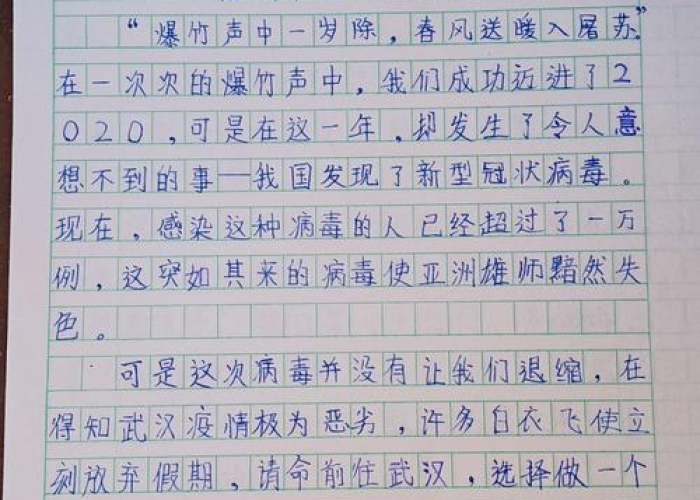 “爆竹声中一岁除，春风送暖入屠苏”
在一次次的爆竹声中，我们成功迈进了2
020，可是在这一年，却发生了令人意
想不到的事—我国发现了新型冠状病毒。
现在，感染这种病毒的人已经超过了一万
例，这突如其来的病毒使亚洲雄师黯然失
色。
可是这次病毒并没有让我们退缩，在
得知武汉疫情极为恶劣，许多白衣飞使立
刻放弃假期，请命前往武汉，选择做一个